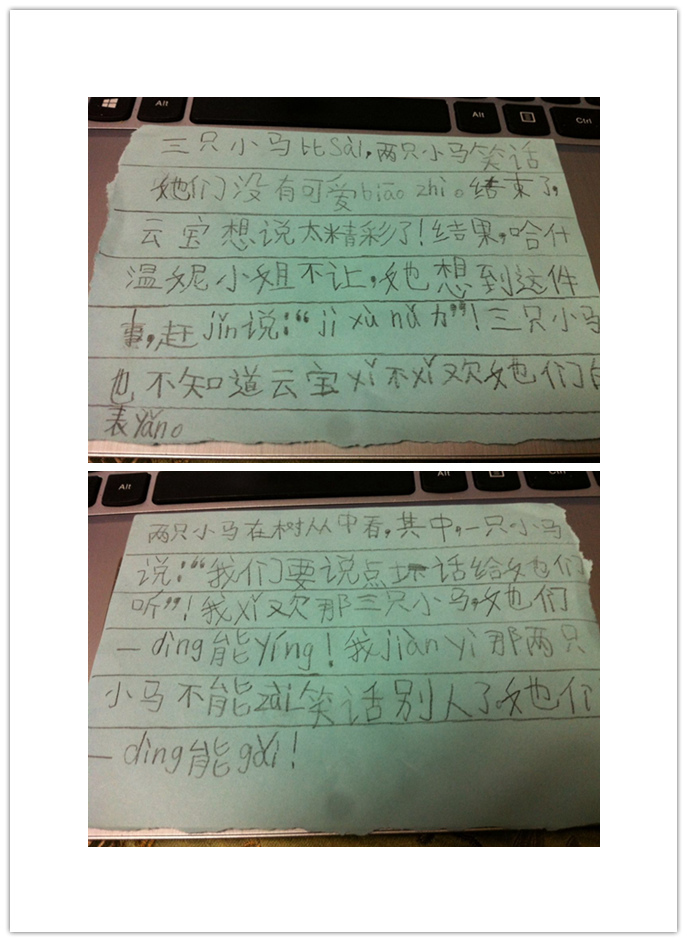 Alt
Alt
Ctrl
三只小马比Sài,两只小马笑话
她们没有可爱biāo zhì。结束了,
云宝想说太精彩了!结果,哈什
温妮小姐不让,她想到这件
事,赶jǐn说:“jì xù nǔ力”!三只小马
也不知道云宝xǐ不xǐ欢她们的
表yǎn。
Alt
Alt
Ctrl
两只小马在树从中看,其中,一只小马
说:“我们要说点坏话给她们
听”!我xǐ欢那三只小马,她们
一dìng能yíng!我jiàn yì那两只
小马不能zài笑话别人了,她们
一dìng能gǎi!